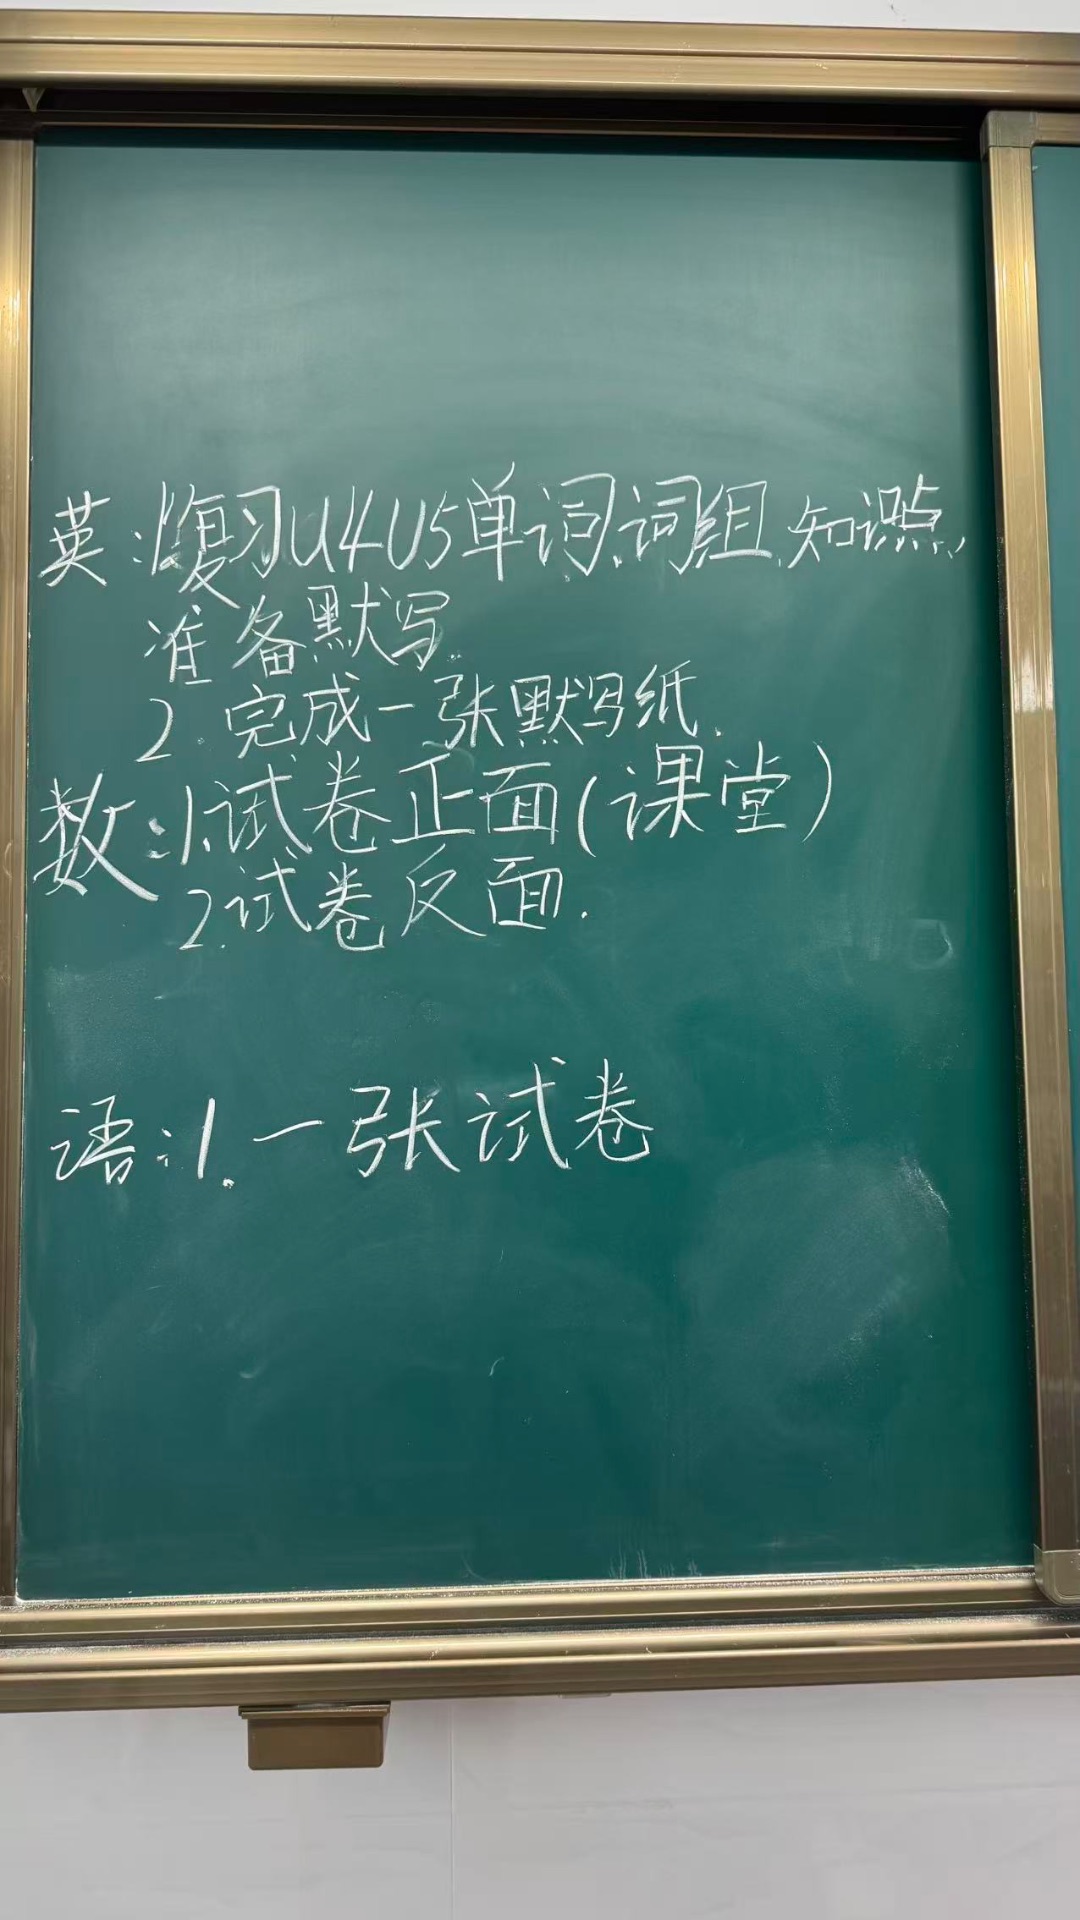 英:1.复习U4U5单词、词组、知识点,
准备默写.
2.完成一张默写纸.
数:1.试卷正面(课堂)
2.试卷反面.
语:1.一张试卷